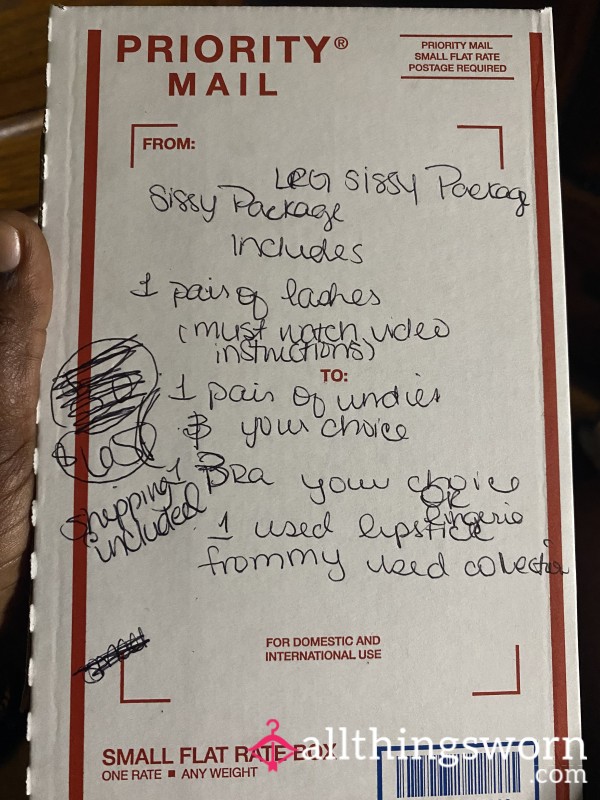 PRIORITY®
MAIL
PRIORITY MAIL
SMALL FLAT RATE
POSTAGE REQUIRED
FROM:
LRG Sissy Package
Sissy Package
Includes
1 pair of lashes
(must watch video
instructions)
TO:
1 pair of undies
$ your choice
Shipping
included
1 BRA your choice
OR
lingerie
1 used lipstick
from my used collection
FOR DOMESTIC AND
INTERNATIONAL USE
SMALL FLAT RATE BOX
ONE RATE ■ ANY WEIGHT
allthingsworn
.com